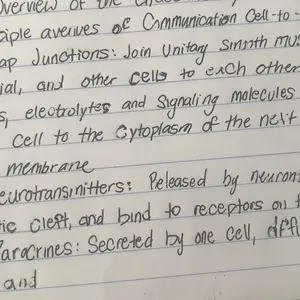 Overview of the
iple avenues of Communication Cell-to
ap Junctions: Join Unitary Smooth mus
ial, and other cells to each other
s, electrolytes and Signaling molecules
Cell to the Cytoplasm of the next
membrane
eurotransmitters: Released by neurons
tic cleft, and bind to receptors on t
Paracrines: Secreted by one cell, diffu
and